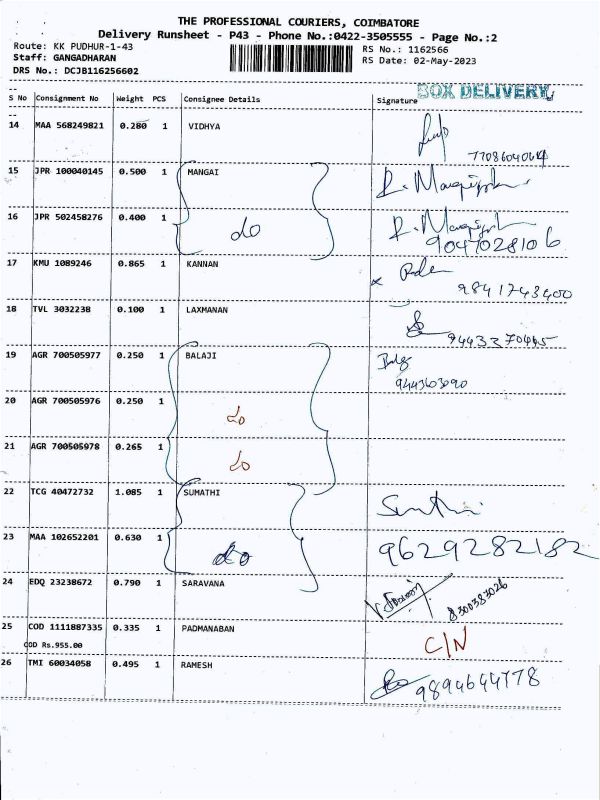 THE PROFESSIONAL COURIERS, COIMBATORE
Delivery Runsheet - P43 - Phone No.:0422-3505555 - Page No.:2
Route: KK PUDHUR-1-43 RS No.: 1162566
Staff: GANGADHARAN RS Date: 02-May-2023
DRS No.: DCJB116256602
BOX DELIVERY
S No Consignment No Weight PCS Consignee Details Signature
14 MAA 568249821 0.280 1 VIDHYA
7708604064
15 JPR 100040145 0.500 1 MANGAI
16 JPR 502458276 0.400 1 do
9047028106
17 KMU 1089246 0.865 1 KANNAN
9841743400
18 TVL 3032238 0.100 1 LAXMANAN
19 AGR 700505977 0.250 1 BALAJI
9443603090
20 AGR 700505976 0.250 1 do
21 AGR 700505978 0.265 1 do
22 TCG 40472732 1.085 1 SUMATHI
23 MAA 102652201 0.630 1 do 9629282182
24 EDQ 23238672 0.790 1 SARAVANA
25 COD 1111887335 0.335 1 PADMANABAN C/N
COD Rs.955.00
26 TMI 60034058 0.495 1 RAMESH
9894644778